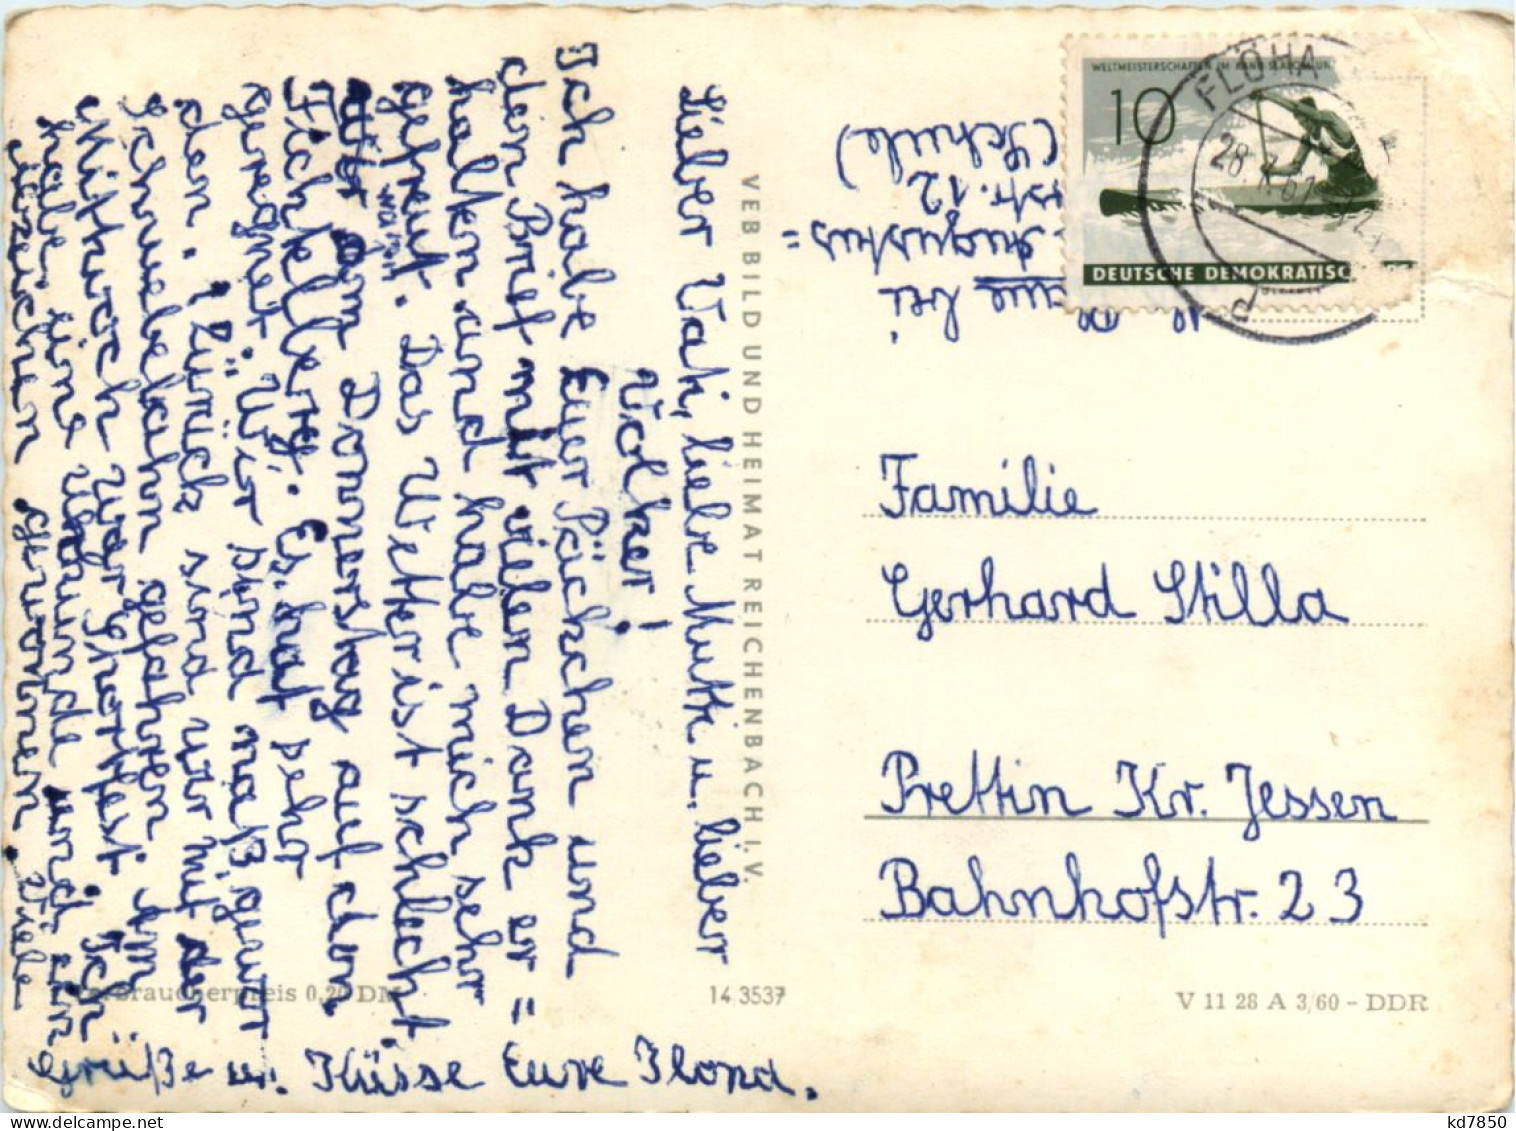 Lieber Vati, liebe Mutti u. lieber
Volker!
Ich habe Euer Päckchen und
den Brief mit vielen Dank er=
halten und habe mich sehr
gefreut. Das Wetter ist schlecht.
Am Donnerstag auf dem
waren
Fichtelberg. Es hat sehr
geregnet. Wir sind naß gewor
den. Zurück sind wir mit der
Schwebebahn gefahren. Am
Mittwoch war Sportfest. Ich
habe eine Urkunde und ein
Abzeichen gewonnen. Viele
Grüße u. Küsse Eure Ilona.
VEB BILD UND HEIMAT REICHENBACH I. V.
bei
Augustus=
str. 12
(Schule)
WELTMEISTERSCHAFTEN IM KANU-SLALOM UND
10
DEUTSCHE DEMOKRATISC
FLÖHA
28. 7. 61
Familie
Gerhard Stilla
Prettin Kr. Jessen
Bahnhofstr. 23
Verbraucherpreis 0,20 DM
14 3537
V 11 28 A 3/60 – DDR
kd7850